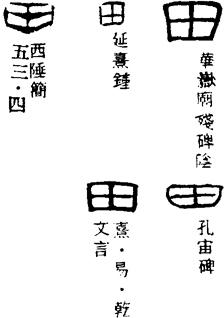 田
華嶽廟殘碑陰
田
延熹鍾
田
西陲簡
五三·四
田
孔宙碑
田
熹·易·乾
文言